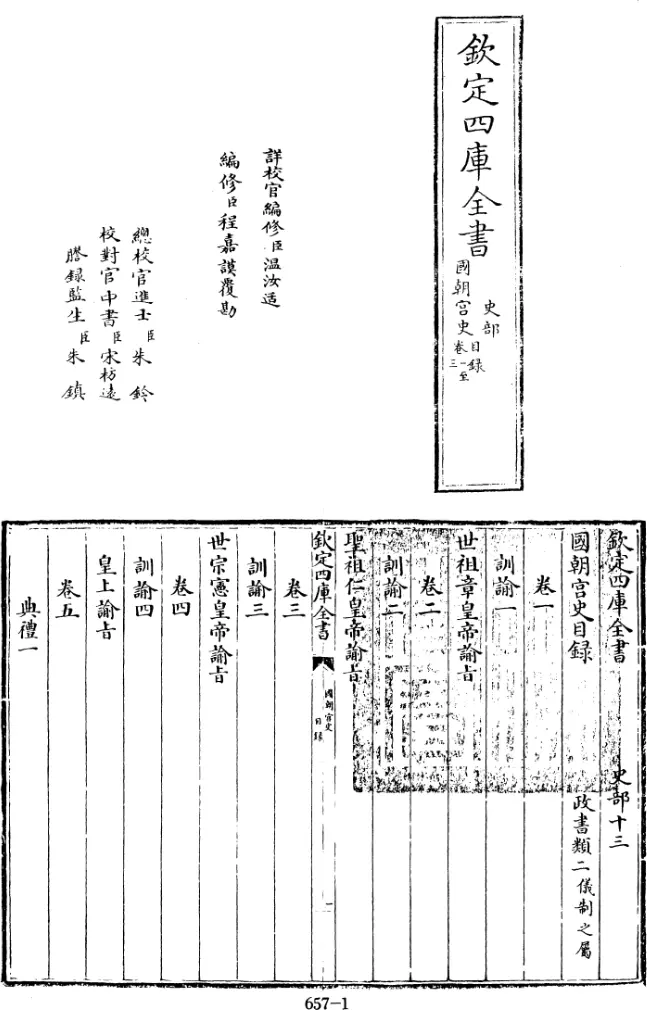 欽定四庫全書
史部
國朝宮史目錄
卷一至三
詳校官編修臣温汝适
編修臣程嘉謨覆勘
總校官進士臣朱鈐
校對官中書臣宋枋遠
謄錄監生臣朱鎮
欽定四庫全書 史部十三
國朝宮史目錄 政書類二儀制之屬
卷一
訓諭一
世祖章皇帝諭旨
卷二
訓諭二
聖祖仁皇帝諭旨
欽定四庫全書 國朝宮史目錄 一
卷三
訓諭三
世宗憲皇帝諭旨
卷四
訓諭四
皇上諭旨
卷五
典禮一
657-1